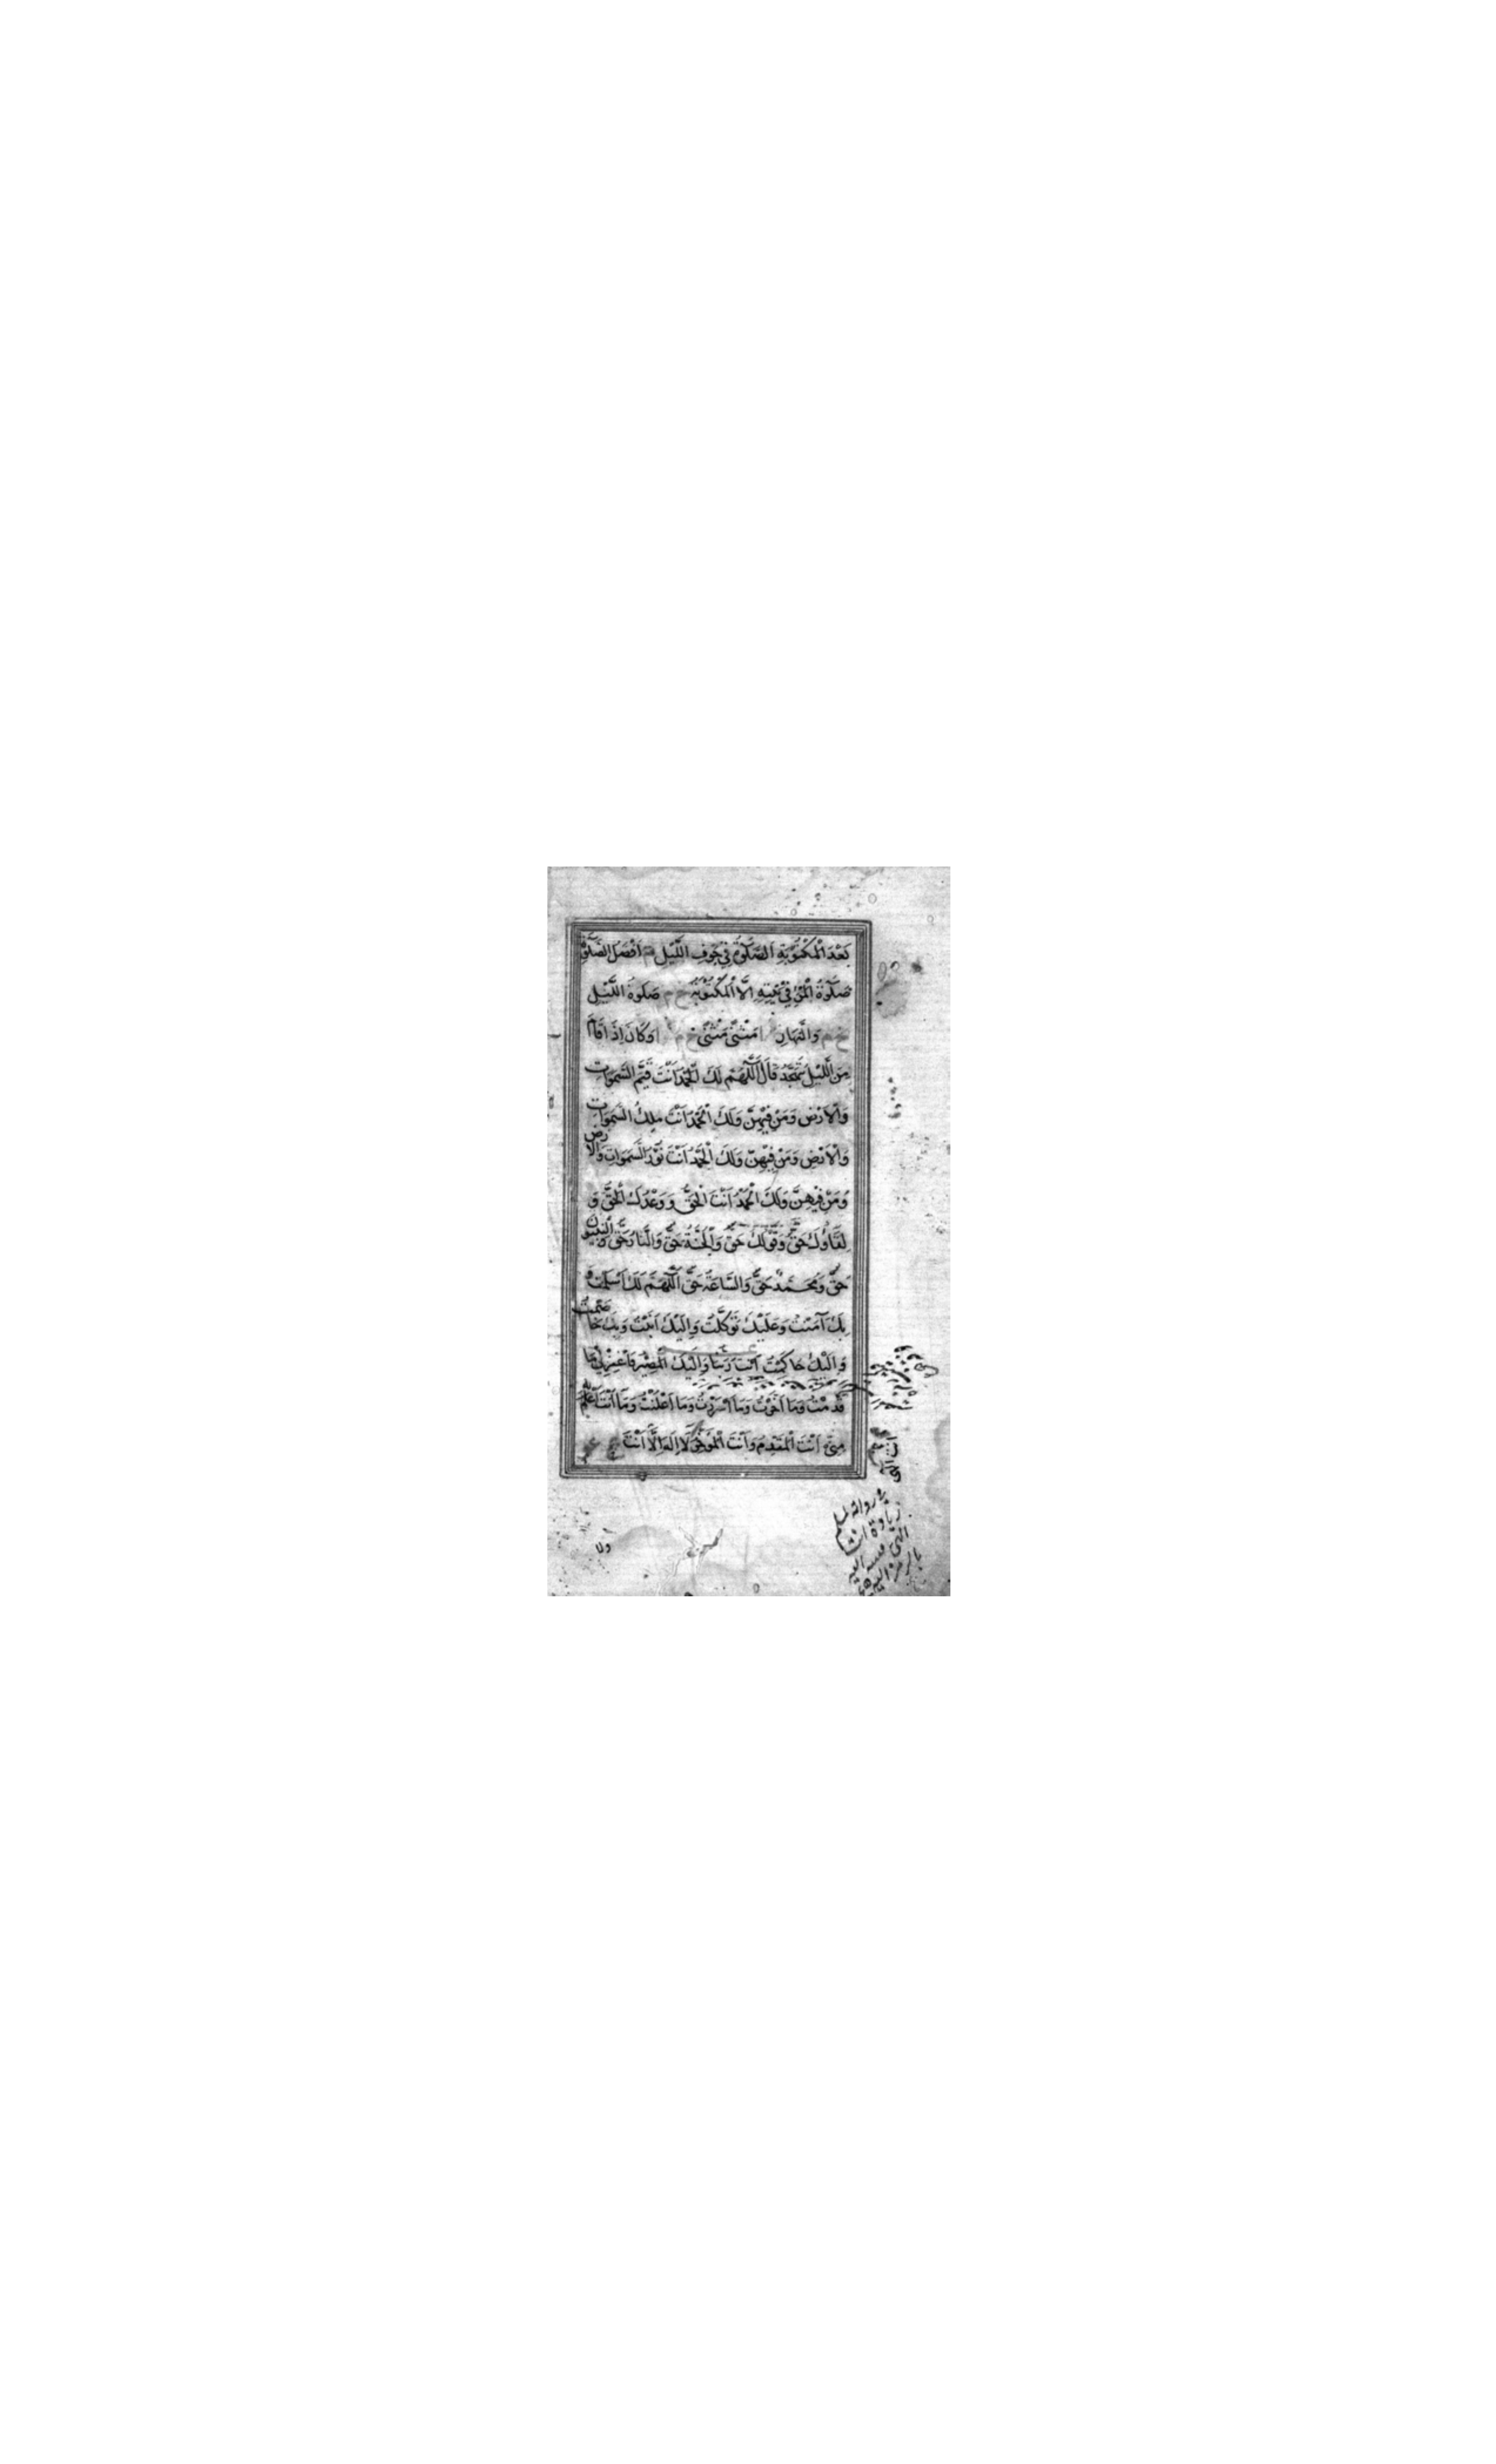 بَعْدَ الْمَكْتُوْبَةِ الصَّلٰوةُ فِي جَوْفِ اللَّيْلِ م اَفْضَلُ الصَّلٰوةِ
صَلٰوةُ الْمَرْءِ فِيْ بَيْتِهِ اِلَّا الْمَكْتُوْبَةُ خ م صَلٰوةُ اللَّيْلِ
خ م وَالنَّهَارِ مَثْنٰى مَثْنٰى خ م وَكَانَ اِذَا قَامَ
مِنَ اللَّيْلِ يَتَهَجَّدُ قَالَ اَللّٰهُمَّ لَكَ الْحَمْدُ اَنْتَ قَيِّمُ السَّمٰوَاتِ
وَالْاَرْضِ وَمَنْ فِيْهِنَّ وَلَكَ الْحَمْدُ اَنْتَ مَلِكُ السَّمٰوَاتِ
وَالْاَرْضِ وَمَنْ فِيْهِنَّ وَلَكَ الْحَمْدُ اَنْتَ نُوْرُ السَّمٰوَاتِ وَالْاَرْضِ
وَمَنْ فِيْهِنَّ وَلَكَ الْحَمْدُ اَنْتَ الْحَقُّ وَوَعْدُكَ الْحَقُّ وَ
لِقَاؤُكَ حَقٌّ وَقَوْلُكَ حَقٌّ وَالْجَنَّةُ حَقٌّ وَالنَّارُ حَقٌّ وَالنَّبِيُّوْنَ
حَقٌّ وَمُحَمَّدٌ حَقٌّ وَالسَّاعَةُ حَقٌّ اَللّٰهُمَّ لَكَ اَسْلَمْتُ وَ
بِكَ آمَنْتُ وَعَلَيْكَ تَوَكَّلْتُ وَاِلَيْكَ اَنَبْتُ وَبِكَ خَاصَمْتُ
وَاِلَيْكَ حَاكَمْتُ اَنْتَ رَبُّنَا وَاِلَيْكَ الْمَصِيْرُ فَاغْفِرْ لِيْ مَا
قَدَّمْتُ وَمَا اَخَّرْتُ وَمَا اَسْرَرْتُ وَمَا اَعْلَنْتُ وَمَا اَنْتَ اَعْلَمُ بِهِ
مِنِّيْ اَنْتَ الْمُقَدِّمُ وَاَنْتَ الْمُؤَخِّرُ لَا اِلٰهَ اِلَّا اَنْتَ
ولا